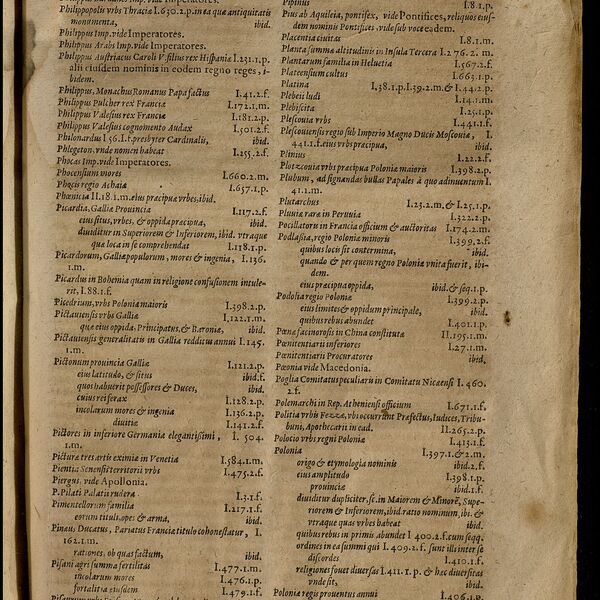 Philippopolis vrbs Thraciæ I.630.2.p. in ea quæ antiquitatis
monumenta, ibid.
Philippus Imp. vide Imperatores.
Philippus Arabs Imp. vide Imperatores.
Philippus Austriacus Caroli V. filius rex Hispaniæ I.231.1.p.
alii eiusdem nominis in eodem regno reges, i-
bidem.
Philippus, Monachus Romanus Papa factus I.41.2.f.
Philippus Pulcher rex Franciæ I.172.1.m.
Philippus Valesius rex Franciæ I.181.2.p.
Philippus Valesius cognomento Audax I.501.2.f.
Philonardus I 56.I.f. presbyter Cardinalis, ibid.
Phlegeton. vnde nomen habeat I.255.2.f.
Phocas Imp. vide Imperatores.
Phocensium mores I.660.2.m.
Phocis regio Achaiæ I.657.1.p.
Phœnicia II.18.1.m. eius præcipuæ vrbes, ibid.
Picardia, Galliæ Prouincia I.117.2.f.
eius situs, vrbes, & oppida præcipua, ibid.
diuiditur in Superiorem & Inferiorem, ibid. vtraque
qua loca in se comprehendat I.118.1.p.
Picardorum, Galliæ populorum, mores & ingenia, I.136.
1.m.
Picardus in Bohemia quam in religione confusionem intule-
rit, I.88.1.f.
Picedrium, vrbs Poloniæ maioris I.398.2.p.
Pictauiensis vrbs Galliæ I.122.1.m.
quæ eius oppida, Principatus, & Baroniæ, ibid.
Pictauiensis generalitatis in Gallia redditus annui I.145.
1.m.
Pictonum prouincia Galliæ I.121.2.p.
eius latitudo, & situs ibid.f.
quos habuerit possessores & Duces, ibid.
cuius rei ferax I.128.2.p.
incolarum mores & ingenia I.136.2.p.
diuitiæ I.141.2.f.
Pictores in inferiore Germania elegantissimi, I. 504.
1.m.
Picturæ tres artis eximiæ in Venetia I.584.1.m.
Pientia Senensis territorii vrbs I.475.2.f.
Piergus, vide Apollonia.
P. Pilati Palatii rudera I.3.1.f.
Pimentellorum familia I.217.1.f.
eorum tituli, opes & arma, ibid.
Pinaus, Ducatus, Pariatus Franciæ titulo cohonestatur, I
162.1.m.
rationes, ob quas factum, ibid.
Pisani agri summa fertilitas I.477.1.m.
incolarum mores I.476.1.p.
fortalitia eiusdem I.479.1.f.
Pipinus I.8.1.p.
Pius ab Aquileia, pontifex, vide Pontifices, reliquos eius-
dem nominis Pontifices, vide sub voce eadem.
Placentia ciuitas I.8.1.m.
Planta summæ altitudinis in Insula Tercera I.276.2. m.
Plantarum familia in Heluetia I.567.2.f.
Plateensium cultus I.663.1.p.
Platina I.38.1.p. I.39.2.m. & I.44.2.p.
Plebeii ludi I.14.1.m.
Plebiscita I.25.1.f.
Plescouia vrbs I.441.1.f.
Plescouiensis regio sub Imperio Magno Ducis Moscouiæ, I.
441.1.f. eius vrbs præcipua, ibid.
Plinius I.22.2.f.
Plotzcouia vrbs præcipua Poloniæ maioris I.398.2.p.
Plubum, ad signandas bullas Papales à quo adinuentum I.
41.1.m.
Plutarchus I.23.2.m. & I.25.1.p.
Pluuiæ raræ in Peruuia I.322.2.p.
Pocillatoru in Francia officium & auctoritas I.174.2.m.
Podlassia, regio Poloniæ minoris I.399.2.f.
quibus locis sit contermina, ibid.
quando & per quem regno Poloniæ vnita fuerit, ibi-
dem.
eius præcipua oppida, ibid. & seq.1.p.
Podolia regio Poloniæ I.399.2.p.
eius limites & oppidum principale, ibid.
quibus rebus abundet I.401.1.p.
Pœnæ facinorosis in China constitutæ II.195.1.m.
Pœnitentiarii inferiores I.27.1.m.
Pœnitentiarii Procuratores ibid.
Pœonia vide Macedonia.
Poglia Comitatus peculiaris in Comitatu Nicaensi I.460.
2.f.
Polemarchi in Rep. Atheniensi officium I.671.1.f.
Politia vrbis Fezzæ, vbi occurrunt Præfectus, Iudices, Tribu-
buni, Apothecarii in ead. II.265.2.p.
Polocio vrbs regni Poloniæ I.413.1.f.
Polonia I.397.1.& 2.m.
origo & etymologia nominis ibid.2.f.
eius amplitudo I.398.1.p.
prouinciæ ibid.1.f.
diuiditur dupliciter, sc. in Maiorem & Minorē, Supe-
riorem & Inferiorem, ibid. ratio nominum, ibi. &
vtraque quas vrbes habeat ibid.
quibus rebus in primis abundet I 400.2.f. cum seqq.
ordines in ea summi qui I.409.2.f. sunt illi inter se
discordes I.410.1.f.
religiones fouet diuersas I.411.1.p. & hæc diuersitas
vnde sit, ibid.
Polonia regis prouentus annui I.406.1.p.